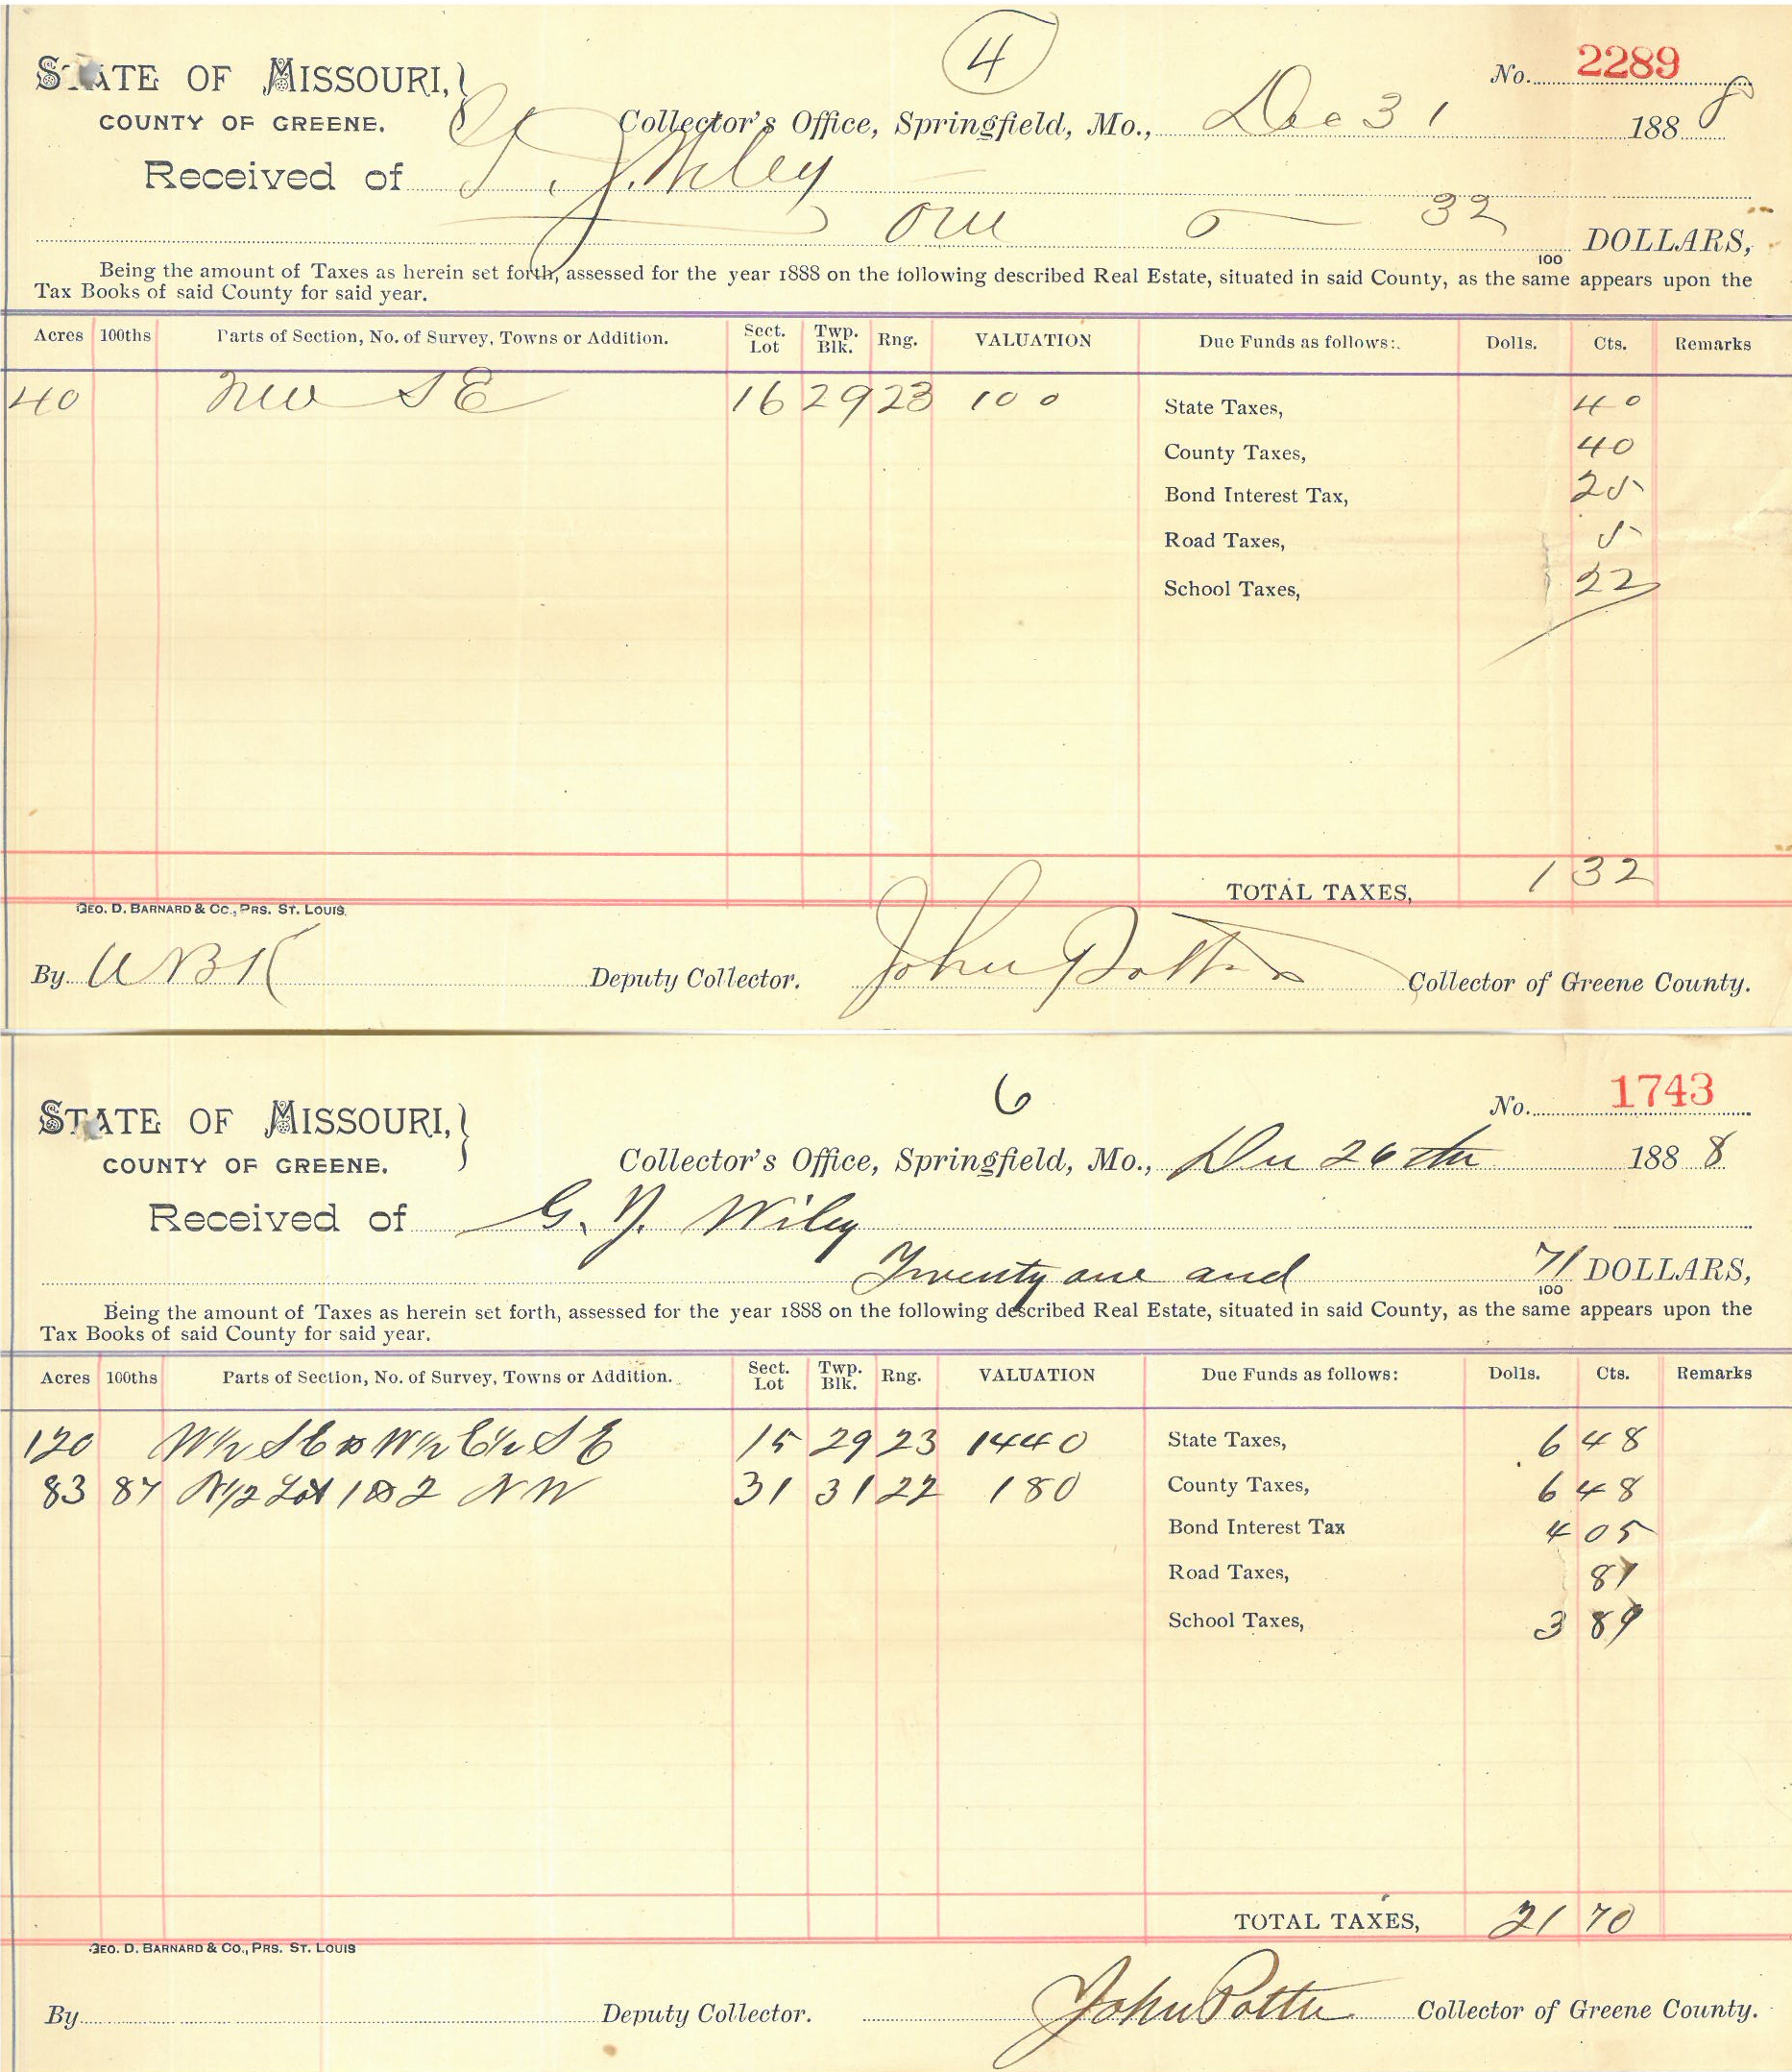 4
No. 2289
STATE OF MISSOURI,
COUNTY OF GREENE.
Collector's Office, Springfield, Mo., Dec 31 1888
Received of Wiley
One 32/100 DOLLARS,
Being the amount of Taxes as herein set forth, assessed for the year 1888 on the following described Real Estate, situated in said County, as the same appears upon the
Tax Books of said County for said year.
Acres 100ths Parts of Section, No. of Survey, Towns or Addition. Sect. Lot Twp. Blk. Rng. VALUATION Due Funds as follows: Dolls. Cts. Remarks
40 NW SE 16 29 23 100 State Taxes, 40
County Taxes, 40
Bond Interest Tax, 25
Road Taxes, 5
School Taxes, 22
TOTAL TAXES, 1 32
GEO. D. BARNARD & CO., PRS. ST. LOUIS.
By WBK Deputy Collector. John Potter Collector of Greene County.
6
No. 1743
STATE OF MISSOURI,
COUNTY OF GREENE.
Collector's Office, Springfield, Mo., Dec 26th 1888
Received of G. Y. Wiley
Twenty one and 71/100 DOLLARS,
Being the amount of Taxes as herein set forth, assessed for the year 1888 on the following described Real Estate, situated in said County, as the same appears upon the
Tax Books of said County for said year.
Acres 100ths Parts of Section, No. of Survey, Towns or Addition. Sect. Lot Twp. Blk. Rng. VALUATION Due Funds as follows: Dolls. Cts. Remarks
120 W½ SE & W½ E½ SE 15 29 23 1440 State Taxes, 6 48
83 87 N½ Lot 1 & 2 NW 31 31 22 180 County Taxes, 6 48
Bond Interest Tax 4 05
Road Taxes, 81
School Taxes, 3 89
TOTAL TAXES, 21 70
GEO. D. BARNARD & CO., PRS. ST. LOUIS
By Deputy Collector. John Potter Collector of Greene County.